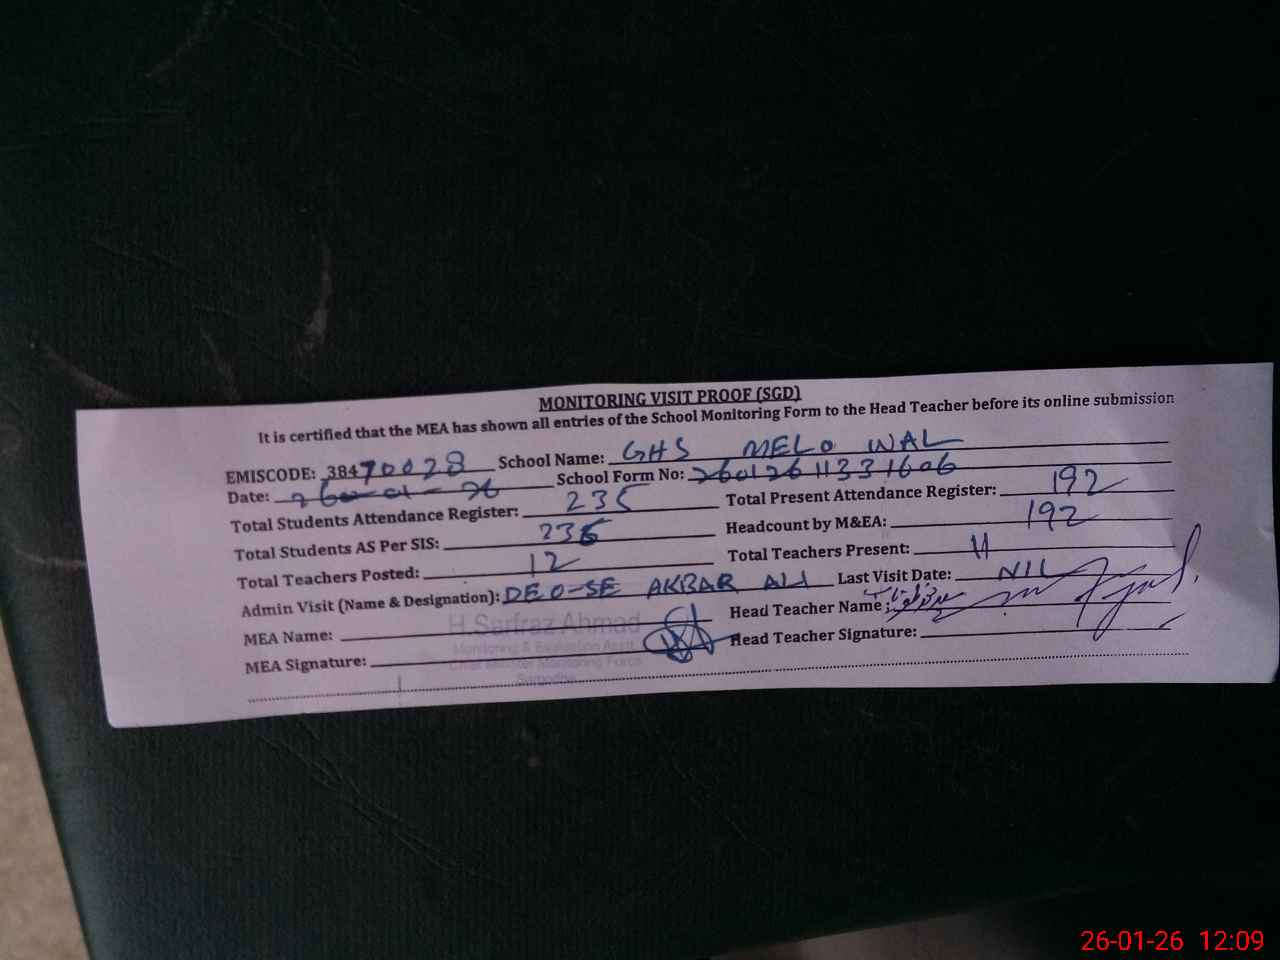 MONITORING VISIT PROOF (SGD)
It is certified that the MEA has shown all entries of the School Monitoring Form to the Head Teacher before its online submission
EMISCODE: 38470028 School Name: GHS MELO WAL
Date: 26-01-26 School Form No: 26012611331606
Total Students Attendance Register: 235 Total Present Attendance Register: 192
Total Students AS Per SIS: 235 Headcount by M&EA: 192
Total Teachers Posted: 12 Total Teachers Present: 11
Admin Visit (Name & Designation): DEO-SE AKBAR ALI Last Visit Date: NIL
MEA Name: H.Sarfraz Ahmad Head Teacher Name:
Monitoring & Evaluation Asstt
MEA Signature: Head Teacher Signature:
Chief Minister Monitoring Force
Sargodha
26-01-26 12:09